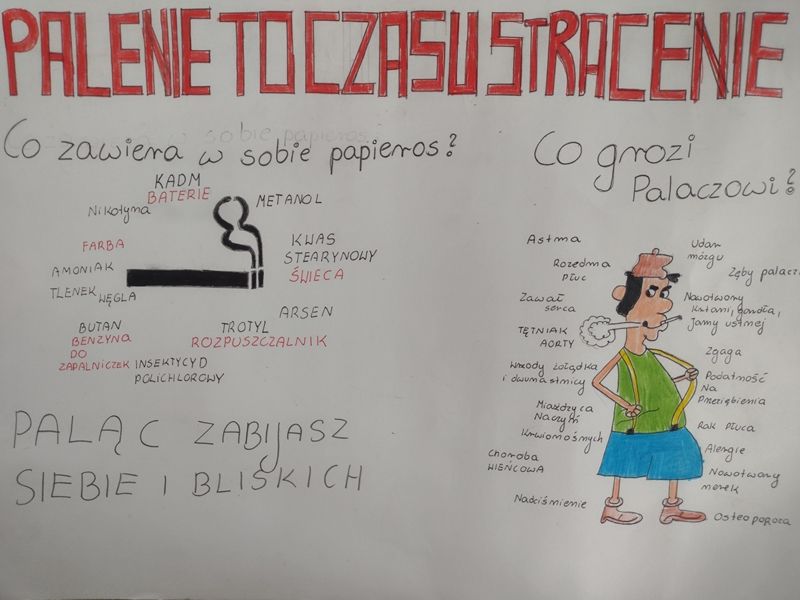 PALENIE TO CZASU STRACENIE
Co zawiera w sobie papieros?
KADM
BATERIE
METANOL
Nikotyna
FARBA
KWAS
STEARYNOWY
ŚWIECA
AMONIAK
TLENEK WĘGLA
ARSEN
BUTAN
BENZYNA
DO
ZAPALNICZEK
TROTYL
ROZPUSZCZALNIK
INSEKTYCYD
POLICHLOROWY
PALĄC ZABIJASZ
SIEBIE I BLISKICH
Co grozi
Palaczowi?
Astma
Rozedma
Płuc
Zawał
serca
TĘTNIAK
AORTY
Wrzody żołądka
i dwunastnicy
Miażdżyca
Naczyń
Krwionośnych
Choroba
WIEŃCOWA
Nadciśnienie
Udar
mózgu
Zęby palacz
Nowotwory
krtani, gardła,
Jamy ustnej
Zgaga
Podatność
Na
Przeziębienia
Rak Płuca
Alergie
Nowotwory
nerek
Osteoporoza